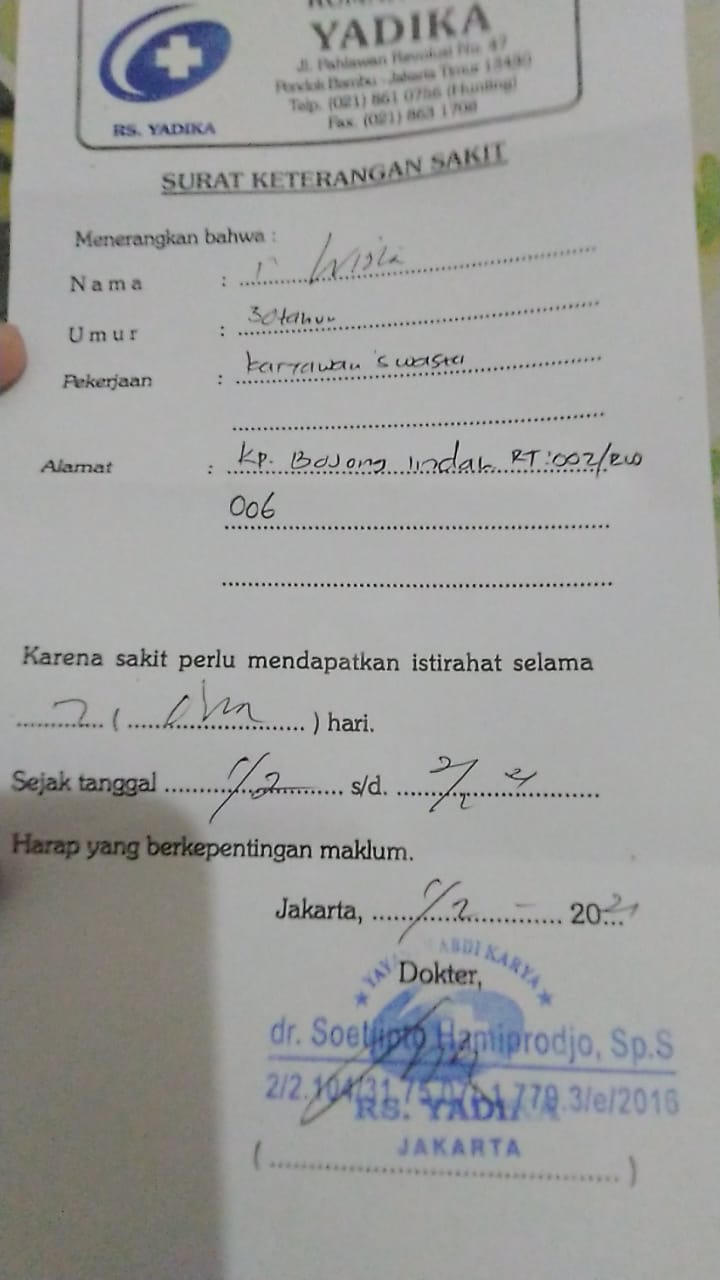 YADIKA
Jl. Pahlawan Revolusi No. 47
Pondok Bambu - Jakarta Timur 13430
Telp. (021) 861 0756 (Hunting)
Fax. (021) 863 1708
RS. YADIKA
SURAT KETERANGAN SAKIT
Menerangkan bahwa :
Nama :
Umur : 30 tahun
Pekerjaan : karyawan swasta
Alamat : Kp. Bojong Indah RT:002/RW
006
Karena sakit perlu mendapatkan istirahat selama
2 ( ) hari.
Sejak tanggal s/d.
Harap yang berkepentingan maklum.
Jakarta, 20
ABDI KARYA
Dokter,
dr. Soetjipto Hamiprodjo, Sp.S
RS. YADIKA
JAKARTA